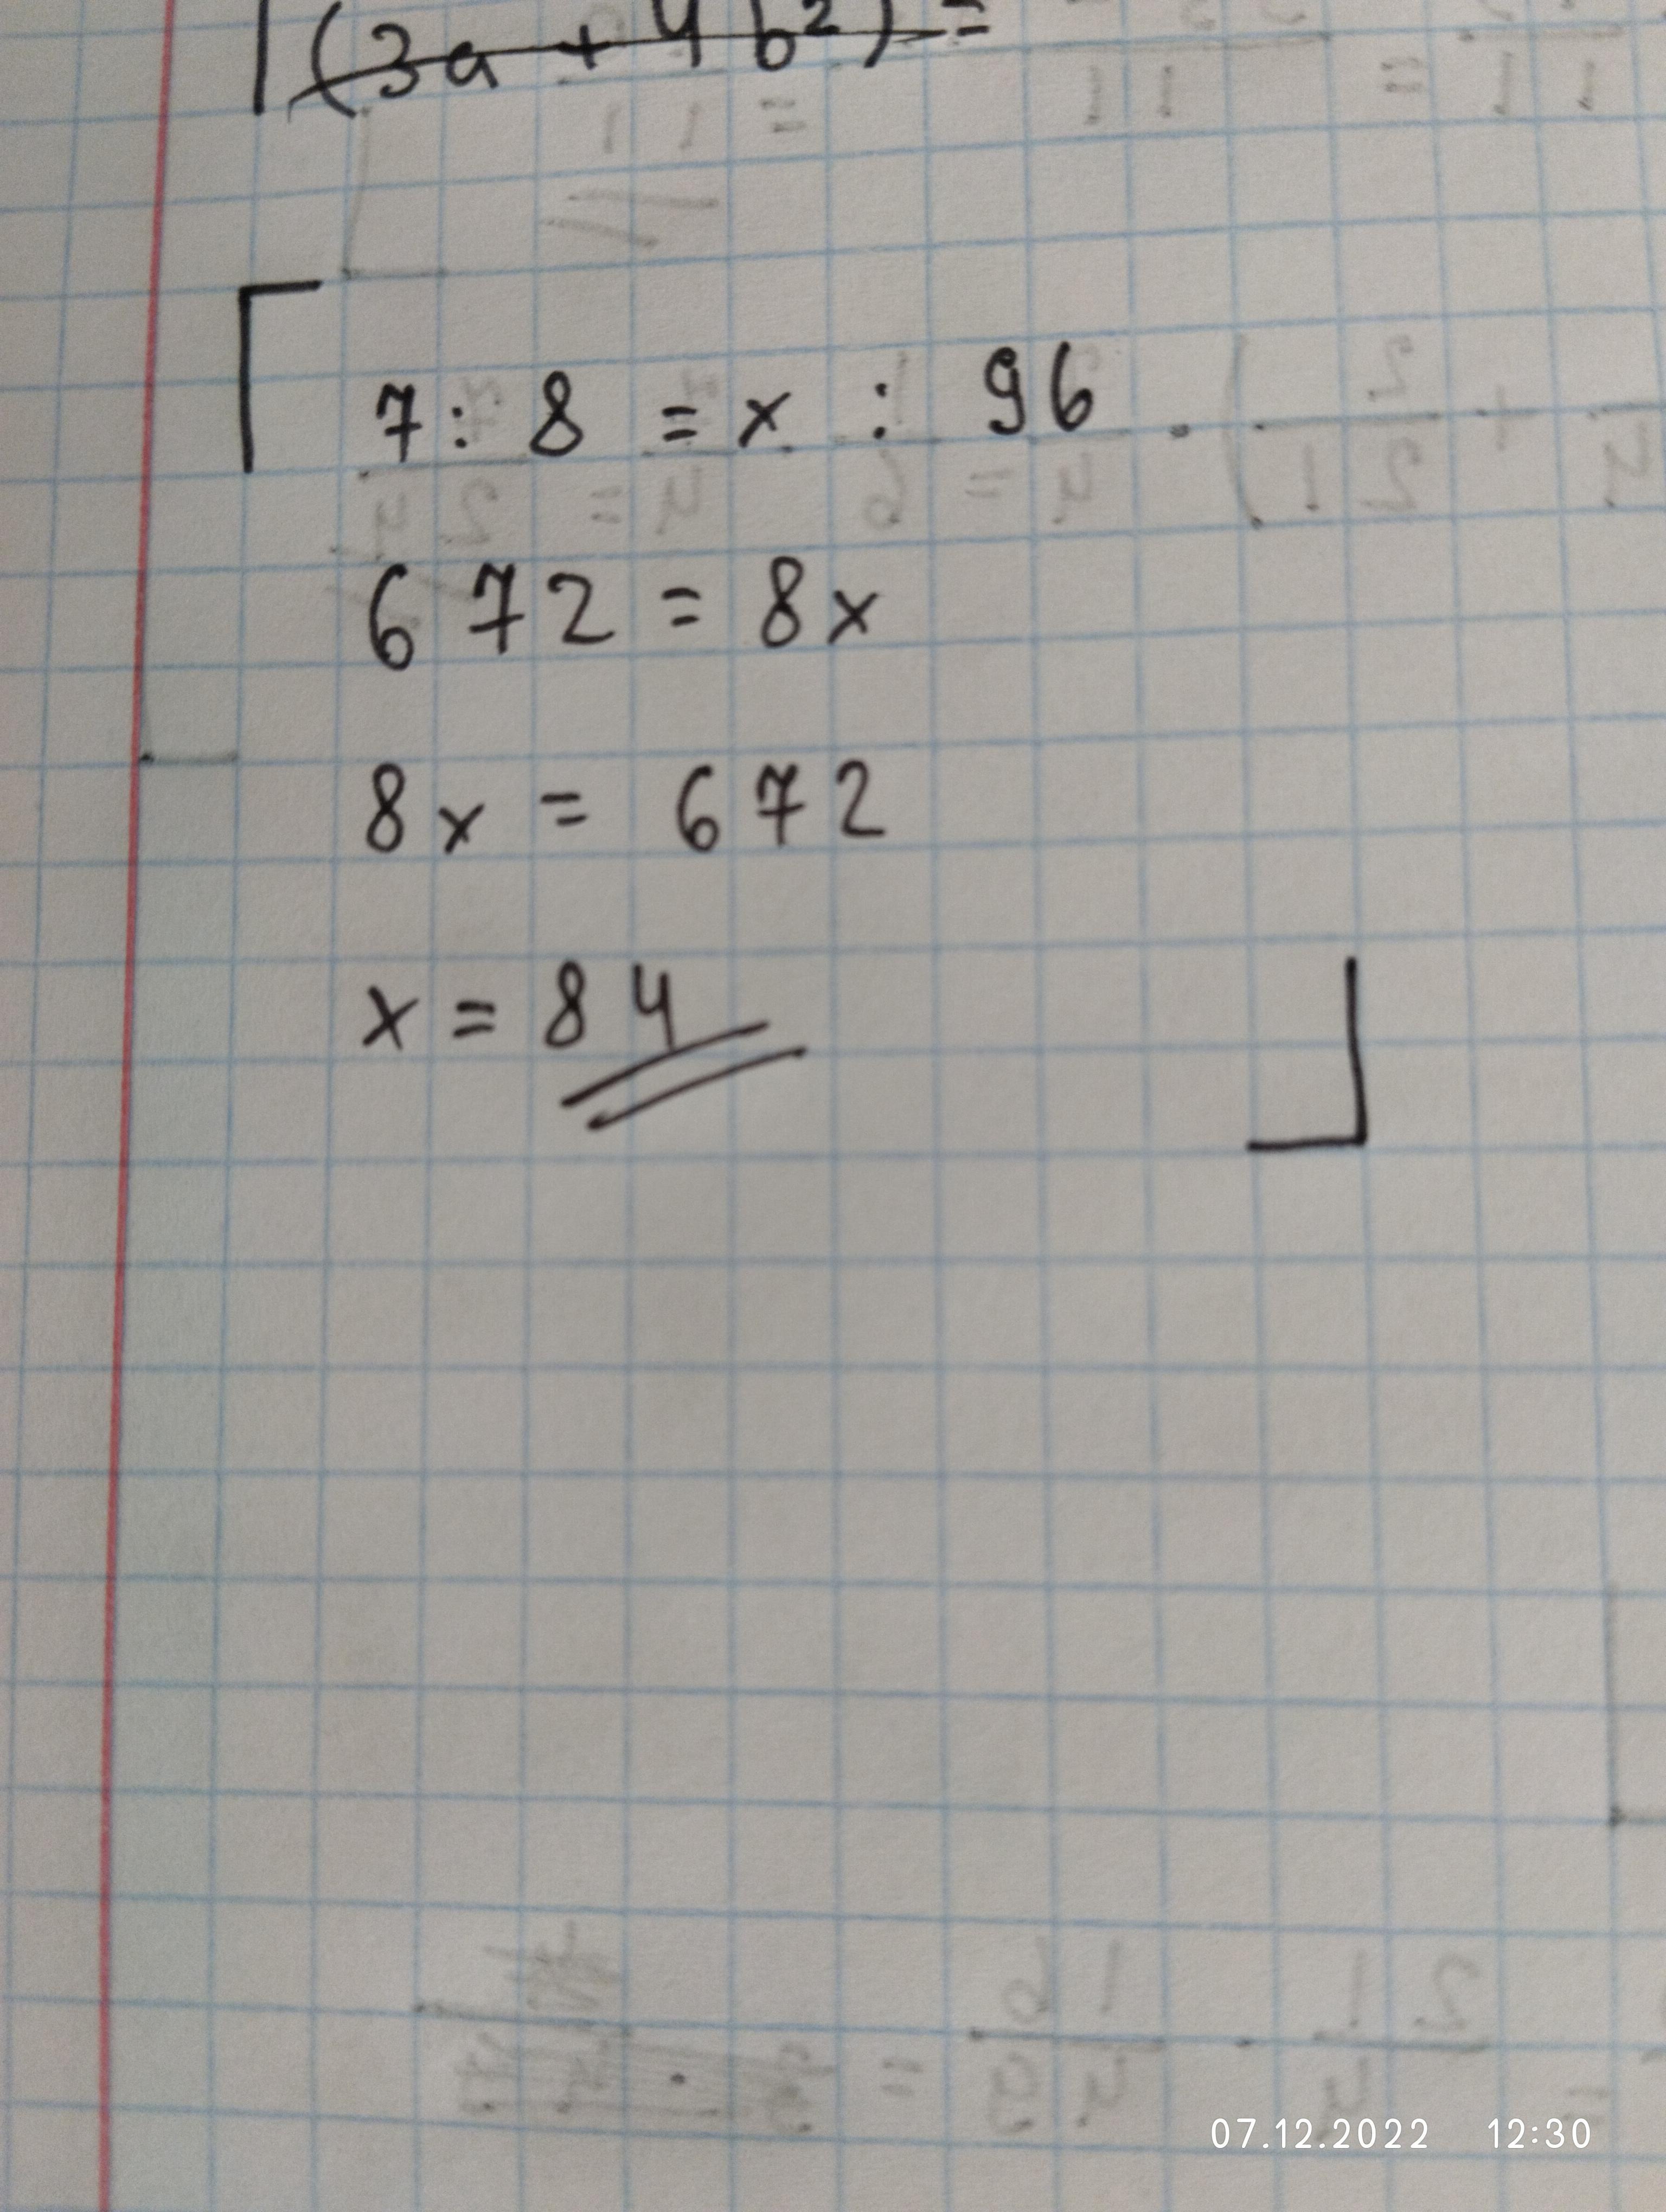 (3a + 4b²) =
7 : 8 = x : 96 .
672 = 8x
8x = 672
x = 84
07.12.2022 12:30